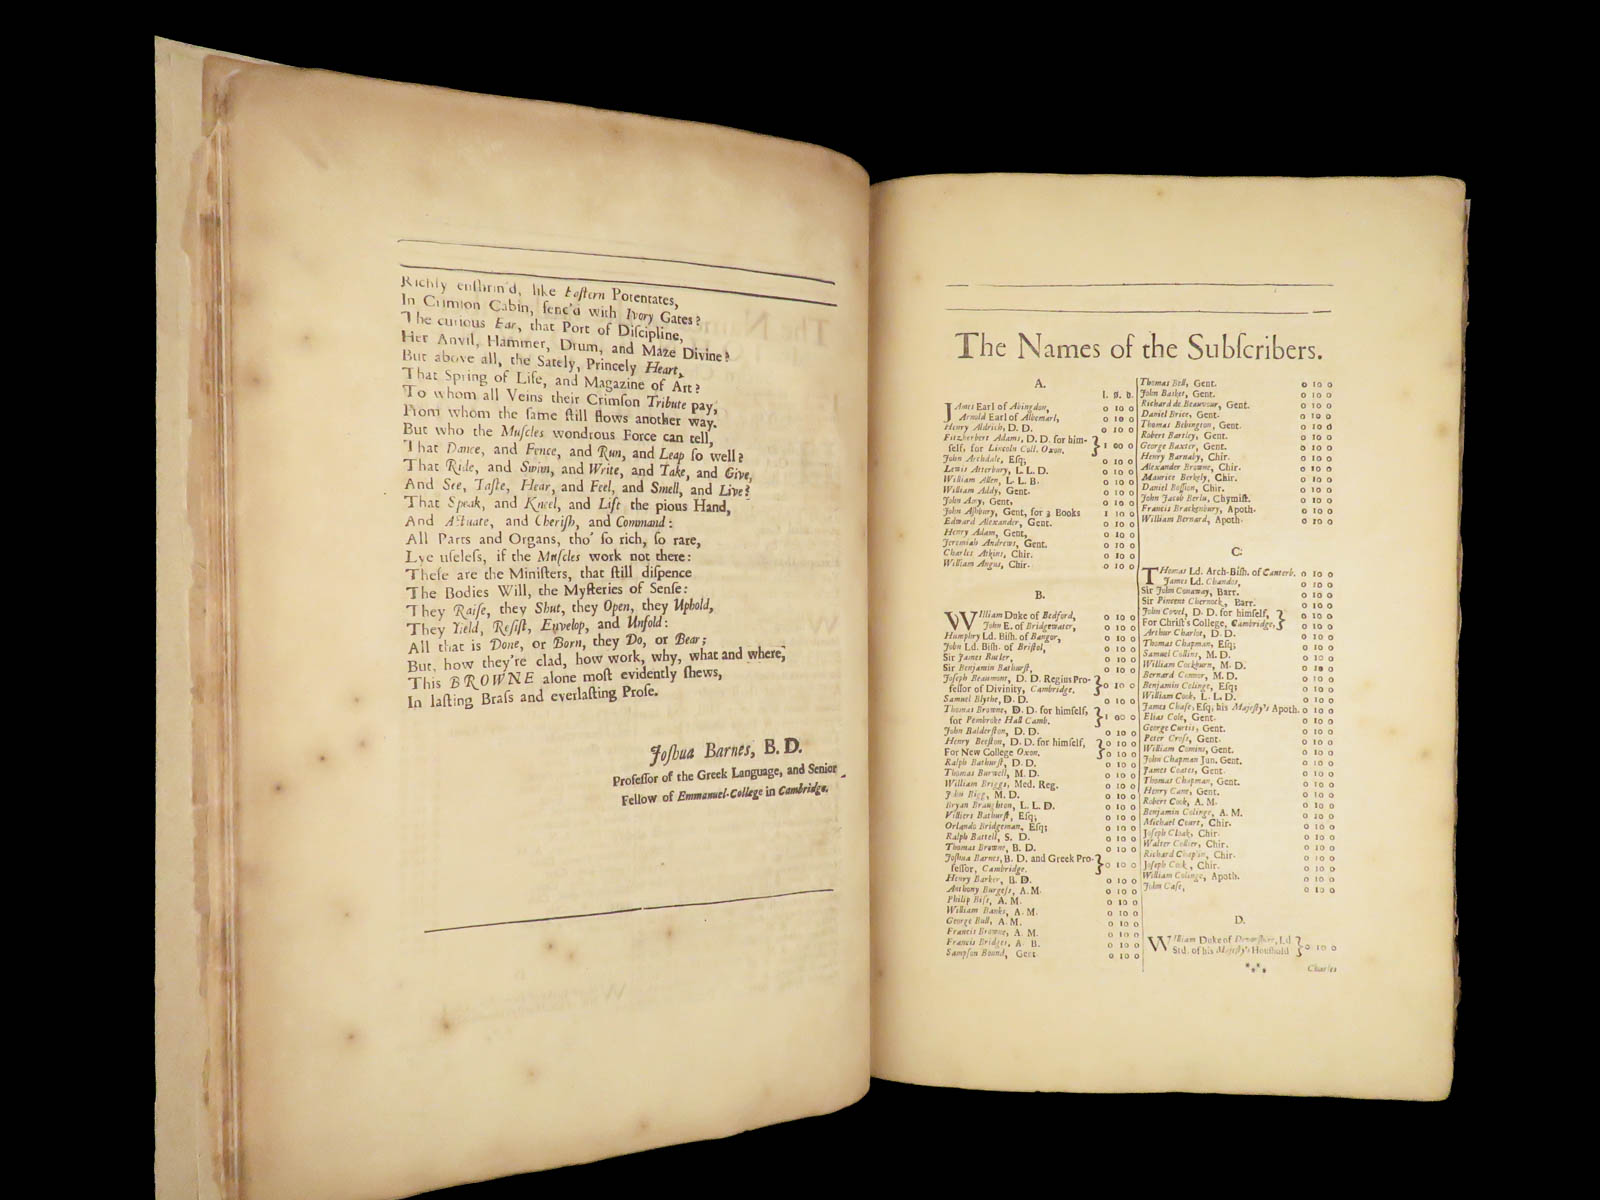 Richly enſhrin'd, like Eaſtern Potentates,
In Crimſon Cabin, fenc'd with Ivory Gates?
The curious Ear, that Port of Diſcipline,
Her Anvil, Hammer, Drum, and Maze Divine?
But above all, the Sately, Princely Heart,
That Spring of Life, and Magazine of Art?
To whom all Veins their Crimſon Tribute pay,
From whom the ſame ſtill flows another way.
But who the Muſcles wondrous Force can tell,
That Dance, and Fence, and Run, and Leap ſo well?
That Ride, and Swim, and Write, and Take, and Give,
And See, Taſte, Hear, and Feel, and Smell, and Live?
That Speak, and Kneel, and Lift the pious Hand,
And Actuate, and Cheriſh, and Command:
All Parts and Organs, tho' ſo rich, ſo rare,
Lye uſeleſs, if the Muſcles work not there:
Theſe are the Miniſters, that ſtill diſpence
The Bodies Will, the Myſteries of Senſe:
They Raiſe, they Shut, they Open, they Uphold,
They Yield, Reſiſt, Envelop, and Unfold:
All that is Done, or Born, they Do, or Bear;
But, how they're clad, how work, why, what and where,
This BROWNE alone moſt evidently ſhews,
In laſting Braſs and everlaſting Proſe.
Joſhua Barnes, B. D.
Profeſſor of the Greek Language, and Senior
Fellow of Emmanuel-College in Cambridge.
The Names of the Subſcribers.
A.
l. ſſ. d.
James Earl of Abingdon, 0 10 0
Arnold Earl of Albemarl, 0 10 0
Henry Aldrich, D. D. 0 10 0
Fitzherbert Adams, D. D. for him-
ſelf, for Lincoln Coll. Oxon. } 1 00 0
John Archdale, Eſq; 0 10 0
Lewis Atterbury, L. L. D. 0 10 0
William Allen, L. L. B. 0 10 0
William Addy, Gent. 0 10 0
John Aſhbury, Gent, for 3 Books 1 10 0
Edward Alexander, Gent. 0 10 0
Henry Adam, Gent, 0 10 0
Jeremiah Andrews, Gent. 0 10 0
Charles Atkins, Chir. 0 10 0
William Angus, Chir. 0 10 0
B.
William Duke of Bedford, 0 10 0
John E. of Bridgewater, 0 10 0
Humphry Ld. Biſh. of Bangor, 0 10 0
John Ld. Biſh. of Briſtol, 0 10 0
Sir James Butler, 0 10 0
Sir Benjamin Bathurſt, 0 10 0
Joſeph Beaumont, D. D. Regius Pro-
feſſor of Divinity, Cambridge. } 0 10 0
Samuel Blythe, D. D. 0 10 0
Thomas Browne, D. D. for himſelf,
for Pembroke Hall Camb. } 1 00 0
John Balderſton, D. D. 0 10 0
Henry Beeſton, D. D. for himſelf, } 0 10 0
For New College Oxon. } 0 10 0
Ralph Bathurſt, D. D. 0 10 0
Thomas Burwell, M. D. 0 10 0
William Briggs, Med. Reg. 0 10 0
John Bigg, M. D. 0 10 0
Bryan Braughton, L. L. D. 0 10 0
Villiers Bathurſt, Eſq; 0 10 0
Orlando Bridgeman, Eſq; 0 10 0
Ralph Battell, S. D. 0 10 0
Thomas Browne, B. D. 0 10 0
Joſhua Barnes, B. D. and Greek Pro-
feſſor, Cambridge. } 0 10 0
Henry Barker, B. D. 0 10 0
Anthony Burgeſs, A. M. 0 10 0
Philip Biſs, A. M. 0 10 0
William Banks, A. M. 0 10 0
George Bull, A. M. 0 10 0
Francis Browne, A. M. 0 10 0
Francis Bridges, A. B. 0 10 0
Sampſon Bound, Gent 0 10 0
Thomas Bell, Gent. 0 10 0
John Basket, Gent. 0 10 0
Richard de Beauvour, Gent. 0 10 0
Daniel Brice, Gent. 0 10 0
Thomas Bebington, Gent. 0 10 0
Robert Bartley, Gent. 0 10 0
George Baxter, Gent. 0 10 0
Henry Barnaby, Chir. 0 10 0
Alexander Browne, Chir. 0 10 0
Maurice Berkely, Chir. 0 10 0
Daniel Boſſion, Chir. 0 10 0
John Jacob Berlu, Chymiſt. 0 10 0
Francis Brackenbury, Apoth. 0 10 0
William Bernard, Apoth. 0 10 0
C.
Thomas Ld. Arch-Biſh. of Canterb. 0 10 0
James Ld. Chandos, 0 10 0
Sir John Conaway, Barr. 0 10 0
Sir Pincent Chernock, Barr. 0 10 0
John Covel, D. D. for himſelf, } 0 10 0
For Chriſt's College, Cambridge, } 0 10 0
Arthur Charlot, D. D. 0 10 0
Thomas Chapman, Eſq; 0 10 0
Samuel Collins, M. D. 0 10 0
William Cockburn, M. D. 0 10 0
Bernard Connor, M. D. 0 10 0
Benjamin Colinge, Eſq; 0 10 0
William Cook, L. L. D. 0 10 0
James Chaſe, Eſq; his Majeſty's Apoth. 0 10 0
Elias Cole, Gent. 0 10 0
George Curtis, Gent. 0 10 0
Peter Croſs, Gent. 0 10 0
William Comins, Gent. 0 10 0
John Chapman Jun. Gent. 0 10 0
James Coates, Gent. 0 10 0
Thomas Chapman, Gent. 0 10 0
Henry Cane, Gent. 0 10 0
Robert Cook, A. M. 0 10 0
Benjamin Colinge, A. M. 0 10 0
Michael Court, Chir. 0 10 0
Joſeph Cloak, Chir. 0 10 0
Walter Collier, Chir. 0 10 0
Richard Chapin, Chir. 0 10 0
Joſeph Cock, Chir. 0 10 0
William Colinge, Apoth. 0 10 0
John Caſe, 0 10 0
D.
William Duke of Devonſhire, Ld
Std. of his Majeſty's Houſhold } 0 10 0
Charles